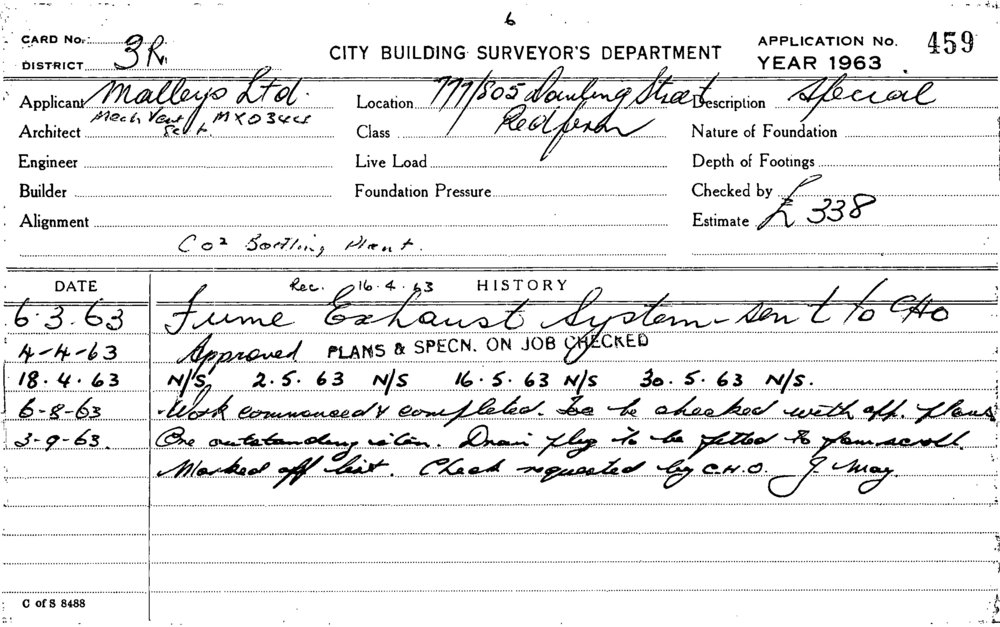 6
CARD No. 3R. CITY BUILDING SURVEYOR'S DEPARTMENT APPLICATION No. 459
DISTRICT YEAR 1963
Applicant Malleys Ltd. Location 777/805 Dowling Street Description Special
Architect Mech Vent Class Redfern Nature of Foundation
Engineer Live Load Depth of Footings
Builder Foundation Pressure Checked by
Alignment Estimate £ 338
Co2 Bottling Plant.
DATE Rec. 16.4.63 HISTORY
6.3.63 Fume Exhaust System - sent to CHO
4-4-63 Approved PLANS & SPECN. ON JOB CHECKED
18.4.63 N/S 2.5.63 N/S 16.5.63 N/S 30.5.63 N/S.
6-8-63 Work commenced & completed. To be checked with app. plans
3-9-63. One outstanding item. Drain plug to be fitted to fan scroll.
Marked off list. Check requested by C.H.O. J. May.
C of S 8488